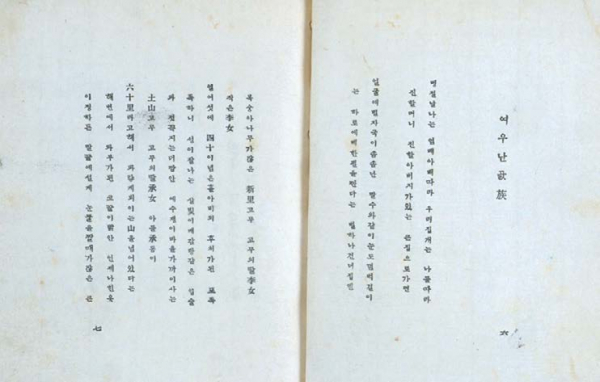 여우난곬族
명절날나는 엄매아배따라 우리집개는 나를따라
진할머니 진할아버지가있는 큰집으로가면
얼굴에별자국이솜솜난 말수와같이눈도껌벅걸이
는 하로에베한필을짠다는 벌하나건너집엔
六
복숭아나무가많은 新里고무 고무의딸李女
작은李女
열여섯에 四十이넘은홀아비의 후처가된 포족
족하니 성이잘나는 살빛이매감탕같은 입술
과 젖꼭지는더깜안 예수쟁이마을가까이사는
土山고무 고무의딸承女 아들承동이
六十里라고해서 파랗게뵈이는山을넘어있다는
해변에서 과부가된 코끝이빩안 언제나힌옷
이정하든 말끝에설게 눈물을짤때가많은 큰
七